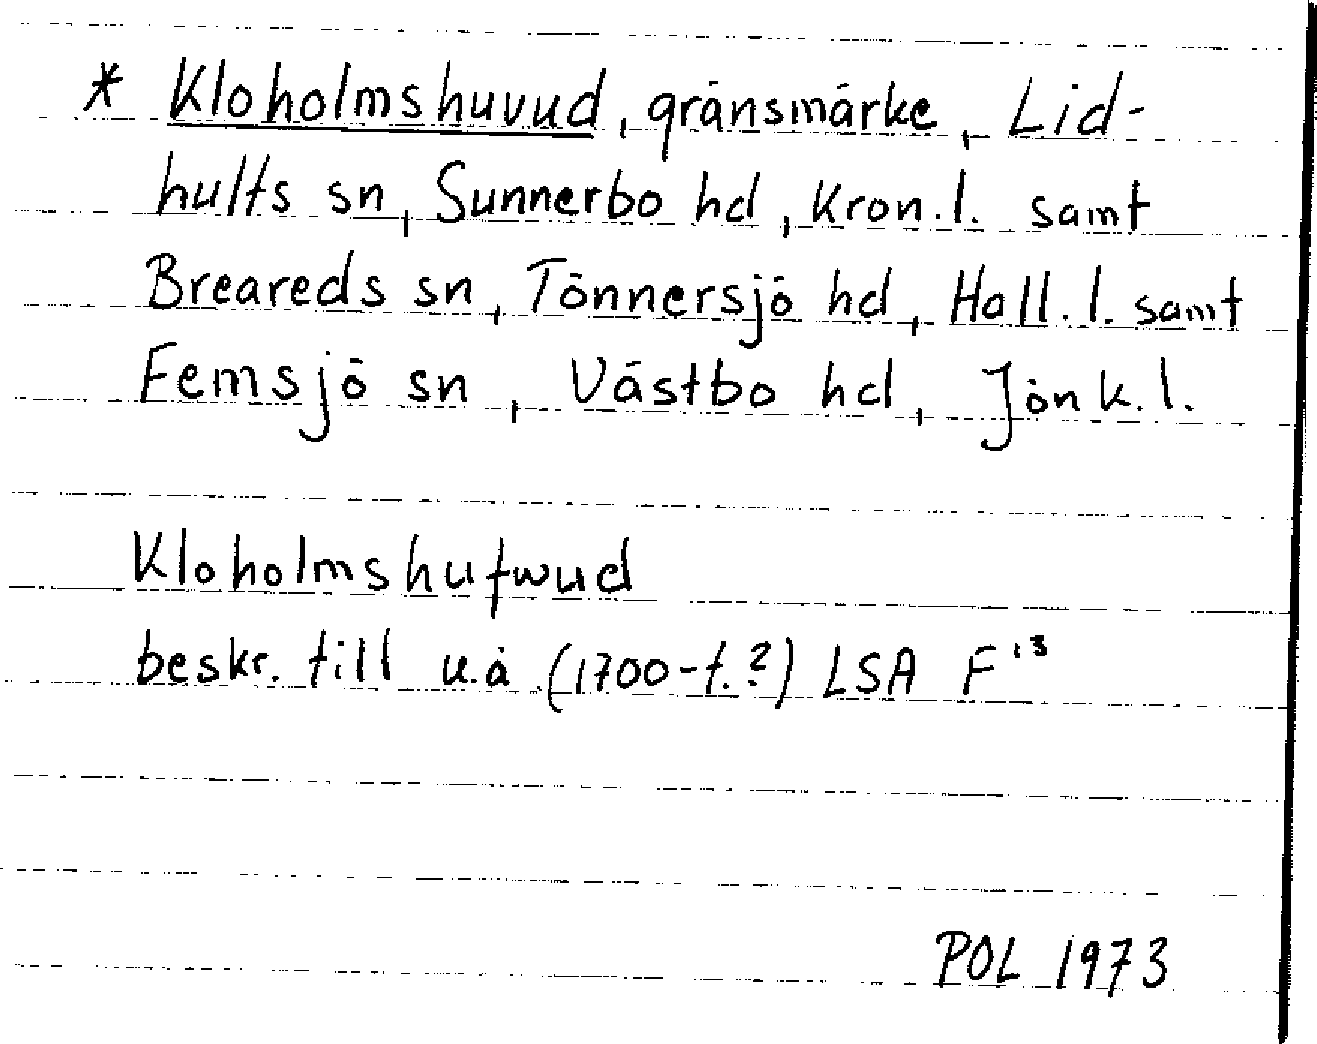 * Kloholmshuvud, gränsmärke, Lid-
hults sn, Sunnerbo hd, Kron.l. samt
Breareds sn, Tönnersjö hd, Hall.l. samt
Femsjö sn, Västbo hd, Jönk.l.
Kloholmshufwud
beskr. till u.å (1700-t.?) LSA F¹³
POL 1973